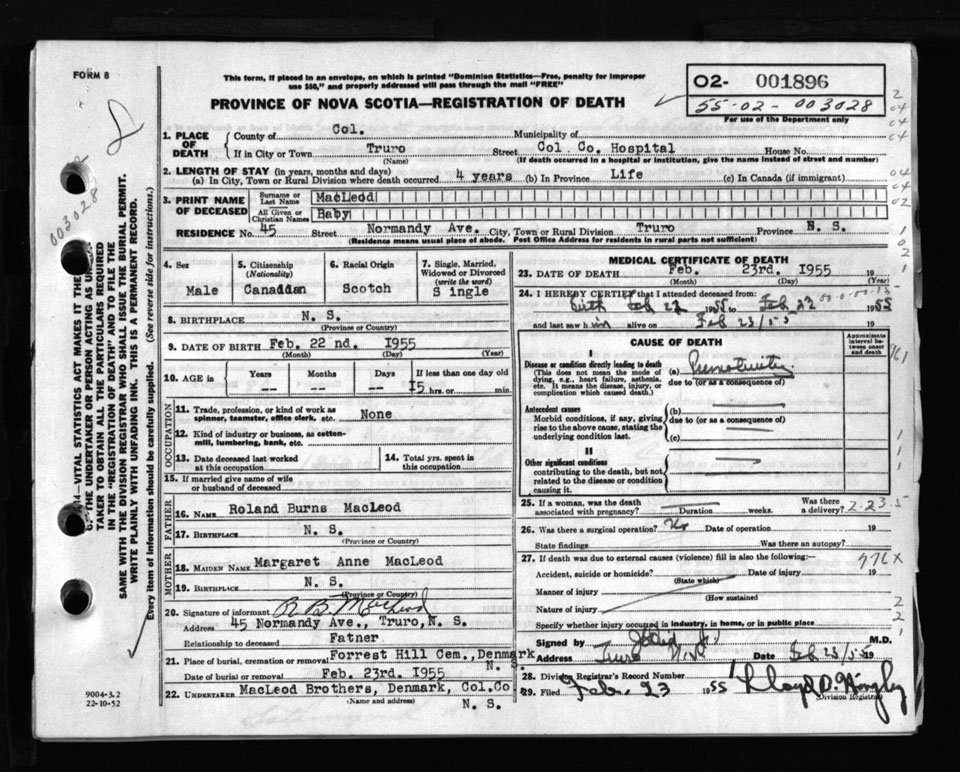 FORM 8
This form, if placed in an envelope, on which is printed "Dominion Statistics—Free, penalty for improper
use $50," and properly addressed will pass through the mail "FREE"
PROVINCE OF NOVA SCOTIA—REGISTRATION OF DEATH
02- 001896
55-02-003028
For use of the Department only
003028
1. PLACE OF DEATH
County of Col. Municipality of
If in City or Town Truro Street Col. Co. Hospital House No.
(Name) (If death occurred in a hospital or institution, give the name instead of street and number)
2. LENGTH OF STAY (in years, months and days)
(a) In City, Town or Rural Division where death occurred 4 years (b) In Province Life (c) In Canada (if immigrant)
3. PRINT NAME OF DECEASED
Surname or Last Name MacLeod
All Given or Christian Names Baby
RESIDENCE No. 45 Street Normandy Ave. City, Town or Rural Division Truro Province N. S.
(Residence means usual place of abode. Post Office Address for residents in rural parts not sufficient)
4. Sex Male
5. Citizenship (Nationality) Canaddan
6. Racial Origin Scotch
7. Single, Married, Widowed or Divorced (write the word) S ingle
8. BIRTHPLACE N. S.
(Province or Country)
9. DATE OF BIRTH Feb. 22 nd. 1955
(Month) (Day) (Year)
10. AGE in Years -- Months -- Days -- If less than one day old 15 hrs. or min.
OCCUPATION
11. Trade, profession, or kind of work as
spinner, teamster, office clerk, etc. None
12. Kind of industry or business, as cotton-
mill, lumbering, bank, etc.
13. Date deceased last worked
at this occupation
14. Total yrs. spent in
this occupation
15. If married give name of wife
or husband of deceased
FATHER
16. NAME Roland Burns MacLeod
17. BIRTHPLACE N. S.
(Province or Country)
MOTHER
18. MAIDEN NAME Margaret Anne MacLeod
19. BIRTHPLACE N. S.
(Province or Country)
20. Signature of informant R. B. MacLeod
Address 45 Normandy Ave., Truro, N. S.
Relationship to deceased Fatner
21. Place of burial, cremation or removal Forrest Hill Cem., Denmark
N. S.
Date of burial or removal Feb. 23rd. 1955
22. UNDERTAKER MacLeod Brothers, Denmark, Col.Co
(Name and address) N. S.
MEDICAL CERTIFICATE OF DEATH
23. DATE OF DEATH Feb. 23rd. 1955 19
(Month) (Day) (Year)
24. I HEREBY CERTIFY that I attended deceased from:
birth Feb 22 1955 to Feb 22 1955
and last saw him alive on Feb 23/55 19
CAUSE OF DEATH
Approximate interval between onset and death
I
Disease or condition directly leading to death
(This does not mean the mode of
dying, e.g., heart failure, asthenia,
etc. It means the disease, injury, or
complication which caused death.)
(a) Prematurity
due to (or as a consequence of)
Antecedent causes
Morbid conditions, if any, giving
rise to the above cause, stating the
underlying condition last.
(b)
due to (or as a consequence of)
(c)
II
Other significant conditions
contributing to the death, but not
related to the disease or condition
causing it.
25. If a woman, was the death
associated with pregnancy? Duration weeks. Was there a delivery? 2-23-5
26. Was there a surgical operation? No Date of operation 19
State findings Was there an autopsy?
27. If death was due to external causes (violence) fill in also the following:
776X
Accident, suicide or homicide? Date of injury 19
(State which)
Manner of injury
(How sustained
Nature of injury
Specify whether injury occurred in industry, in home, or in public place
Signed by M.D.
Address Truro N.S. Date Feb 23/55 19
28. Division Registrar's Record Number
29. Filed Feb. 23 1955 Lloyd D. Hingley
(Division Registrar)
—VITAL STATISTICS ACT MAKES IT THE
THE UNDERTAKER OR PERSON ACTING AS UNDER-
TAKER TO OBTAIN ALL THE PARTICULARS REQUIRED
IN THE "REGISTRATION OF DEATH" AND TO FILE THE
SAME WITH THE DIVISION REGISTRAR WHO SHALL ISSUE THE BURIAL PERMIT.
WRITE PLAINLY WITH UNFADING INK. THIS IS A PERMANENT RECORD.
Every item of information should be carefully supplied. (See reverse side for instructions.)
9004-3.2
22-10-52